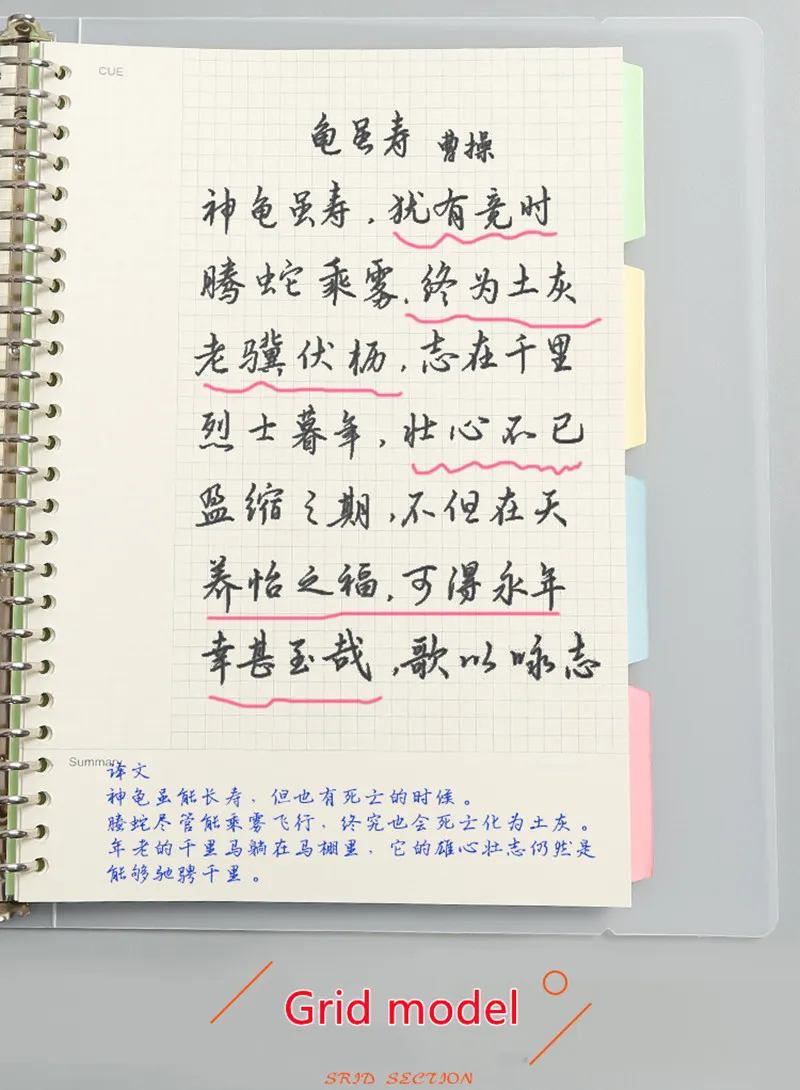 CUE
龟虽寿 曹操
神龟虽寿，犹有竟时
腾蛇乘雾，终为土灰
老骥伏枥，志在千里
烈士暮年，壮心不已
盈缩之期，不但在天
养怡之福，可得永年
幸甚至哉，歌以咏志
Summary
译文
神龟虽能长寿，但也有死亡的时候。
腾蛇尽管能乘雾飞行，终究也会死亡化为土灰。
年老的千里马躺在马棚里，它的雄心壮志仍然是
能够驰骋千里。
Grid model
SRID SECTION